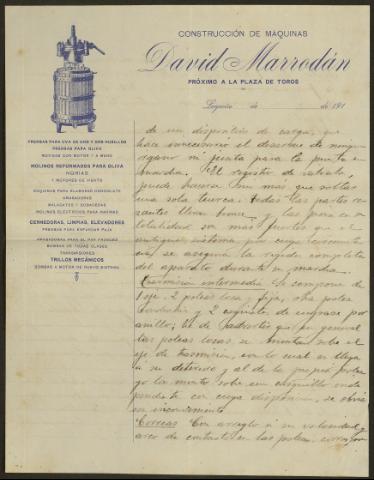 CONSTRUCCIÓN DE MÁQUINAS
David Marrodán
PRÓXIMO A LA PLAZA DE TOROS
Logroño de de 191
PRENSAS PARA UVA DE UNO Y DOS HUSILLOS
PRENSAS PARA OLIVA
MOVIDAS CON MOTOR Y A MANO
MOLINOS REFORMADOS PARA OLIVA
NORIAS
Y MOTORES DE VIENTO
MÁQUINAS PARA ELABORAR CHOCOLATE
GRANADORAS
MALACATES Y SEGADORAS
MOLINOS ELÉCTRICOS PARA HARINAS
CERNEDORAS, LIMPIAS, ELEVADORES
PRENSAS PARA EMPACAR PAJA
BOMBAS DE TODAS CLASES
TRANSMISIONES
TRILLOS MECÁNICOS
BOMBAS A MOTOR DE NUEVO SISTEMA
de un dispositivo de carga, que
hace innecesario el desarme de ningun
órgano ni junta para la puesta en
marcha. El registro de
puede hacerse con más que soltar
una sola tuerca. Todas las partes
en su
totalidad son mas fuertes que el
antiguo sistema por cuya
se asegura la rigidez completa
del aparato durante su marcha.
Trasmisión intermedia Se compone de
1 eje, 2 poleas loca y fija, otra polea
y 2 cojinetes de engrase por
anillo; es de advertir que en general
las poleas locas se montan sobre el
eje de trasmisión, con lo cual se llega
á su deterioro y al de la propia polea
yo la monto sobre un casquillo
con cuya disposición se obvia
un inconveniente
Correas Con arreglo á su velocidad y
arco de contacto en las poleas